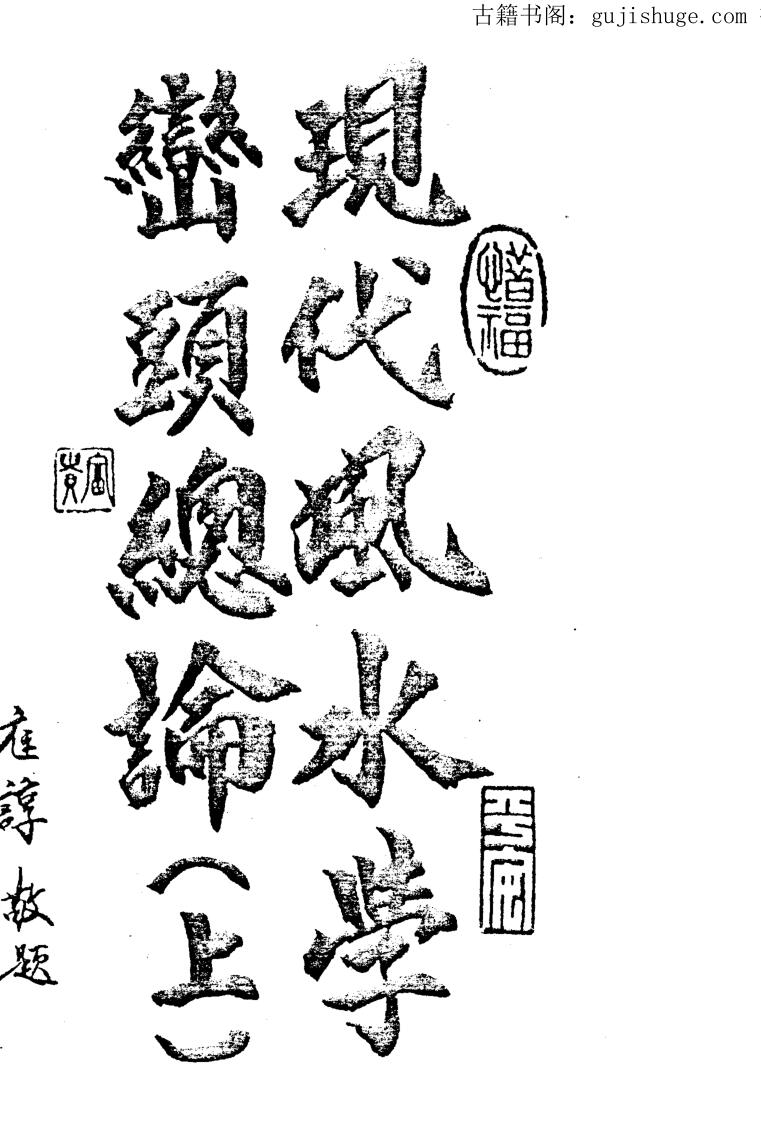 古籍书阁：gujishuge.com
現代風水學
巒頭總論（上）
惜福
平安
富貴
敬題